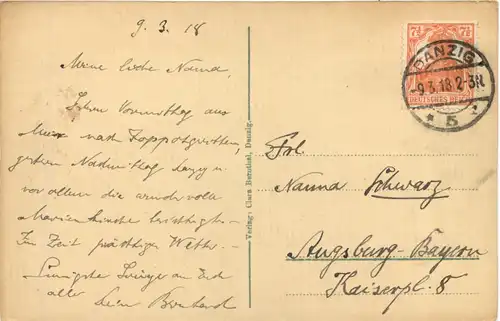 9. 3. 18
Meine liebe Nanna,
Vormittag aus
nach Zoppot geritten,
gestern Nachmittag Danzig u.
vor allem die wundervolle
Marienkirche besichtigt.
Zur Zeit prächtiges Wetter.
Innigste Grüsse an Euch
alle Dein Bernhard
Verlag: Clara Bernthal, Danzig.
7½ 7½
DEUTSCHES REICH
DANZIG
-9.3.18.2-3N.
* 5
Frl.
Nanna Schwarz
Augsburg-Bayern
Kaiserpl. 8